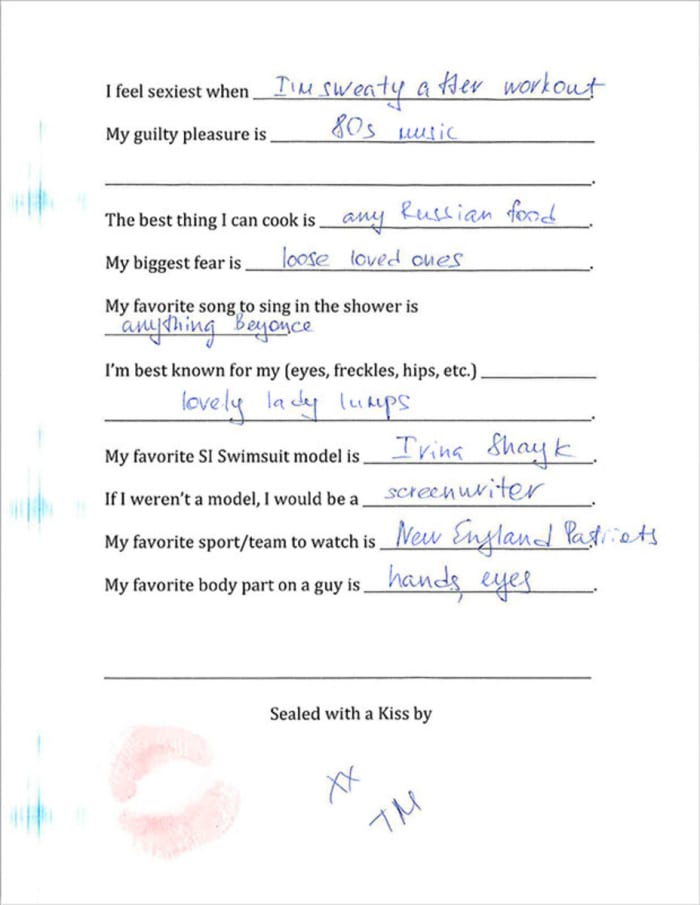 I feel sexiest when I'm sweaty after workout.
My guilty pleasure is 80s music
.
The best thing I can cook is any Russian food.
My biggest fear is loose loved ones.
My favorite song to sing in the shower is
anything Beyonce.
I'm best known for my (eyes, freckles, hips, etc.)
lovely lady lumps.
My favorite SI Swimsuit model is Irina Shayk.
If I weren't a model, I would be a screenwriter.
My favorite sport/team to watch is New England Patriots.
My favorite body part on a guy is hands, eyes.
Sealed with a Kiss by
XX
TM